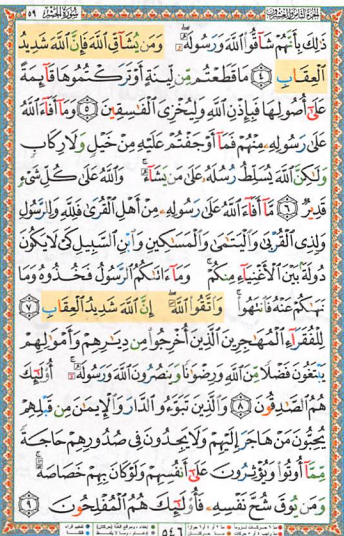 الجزء الثامن والعشرون سورة الحشر ٥٩
ذَٰلِكَ بِأَنَّهُمْ شَآقُّوا۟ ٱللَّهَ وَرَسُولَهُۥ ۖ وَمَن يُشَآقِّ ٱللَّهَ فَإِنَّ ٱللَّهَ شَدِيدُ
ٱلْعِقَابِ ٤ مَا قَطَعْتُم مِّن لِّينَةٍ أَوْ تَرَكْتُمُوهَا قَآئِمَةً
عَلَىٰٓ أُصُولِهَا فَبِإِذْنِ ٱللَّهِ وَلِيُخْزِىَ ٱلْفَـٰسِقِينَ ٥ وَمَآ أَفَآءَ ٱللَّهُ
عَلَىٰ رَسُولِهِۦ مِنْهُمْ فَمَآ أَوْجَفْتُمْ عَلَيْهِ مِنْ خَيْلٍ وَلَا رِكَابٍ
وَلَـٰكِنَّ ٱللَّهَ يُسَلِّطُ رُسُلَهُۥ عَلَىٰ مَن يَشَآءُ ۚ وَٱللَّهُ عَلَىٰ كُلِّ شَىْءٍ
قَدِيرٌ ٦ مَّآ أَفَآءَ ٱللَّهُ عَلَىٰ رَسُولِهِۦ مِنْ أَهْلِ ٱلْقُرَىٰ فَلِلَّهِ وَلِلرَّسُولِ
وَلِذِى ٱلْقُرْبَىٰ وَٱلْيَتَـٰمَىٰ وَٱلْمَسَـٰكِينِ وَٱبْنِ ٱلسَّبِيلِ كَىْ لَا يَكُونَ
دُولَةًۢ بَيْنَ ٱلْأَغْنِيَآءِ مِنكُمْ ۚ وَمَآ ءَاتَىٰكُمُ ٱلرَّسُولُ فَخُذُوهُ وَمَا
نَهَىٰكُمْ عَنْهُ فَٱنتَهُوا۟ ۚ وَٱتَّقُوا۟ ٱللَّهَ ۖ إِنَّ ٱللَّهَ شَدِيدُ ٱلْعِقَابِ ٧
لِلْفُقَرَآءِ ٱلْمُهَـٰجِرِينَ ٱلَّذِينَ أُخْرِجُوا۟ مِن دِيَـٰرِهِمْ وَأَمْوَٰلِهِمْ
يَبْتَغُونَ فَضْلًا مِّنَ ٱللَّهِ وَرِضْوَٰنًا وَيَنصُرُونَ ٱللَّهَ وَرَسُولَهُۥٓ ۚ أُو۟لَـٰٓئِكَ
هُمُ ٱلصَّـٰدِقُونَ ٨ وَٱلَّذِينَ تَبَوَّءُو ٱلدَّارَ وَٱلْإِيمَـٰنَ مِن قَبْلِهِمْ
يُحِبُّونَ مَنْ هَاجَرَ إِلَيْهِمْ وَلَا يَجِدُونَ فِى صُدُورِهِمْ حَاجَةً
مِّمَّآ أُوتُوا۟ وَيُؤْثِرُونَ عَلَىٰٓ أَنفُسِهِمْ وَلَوْ كَانَ بِهِمْ خَصَاصَةٌ ۚ
وَمَن يُوقَ شُحَّ نَفْسِهِۦ فَأُو۟لَـٰٓئِكَ هُمُ ٱلْمُفْلِحُونَ ٩
٥٤٦